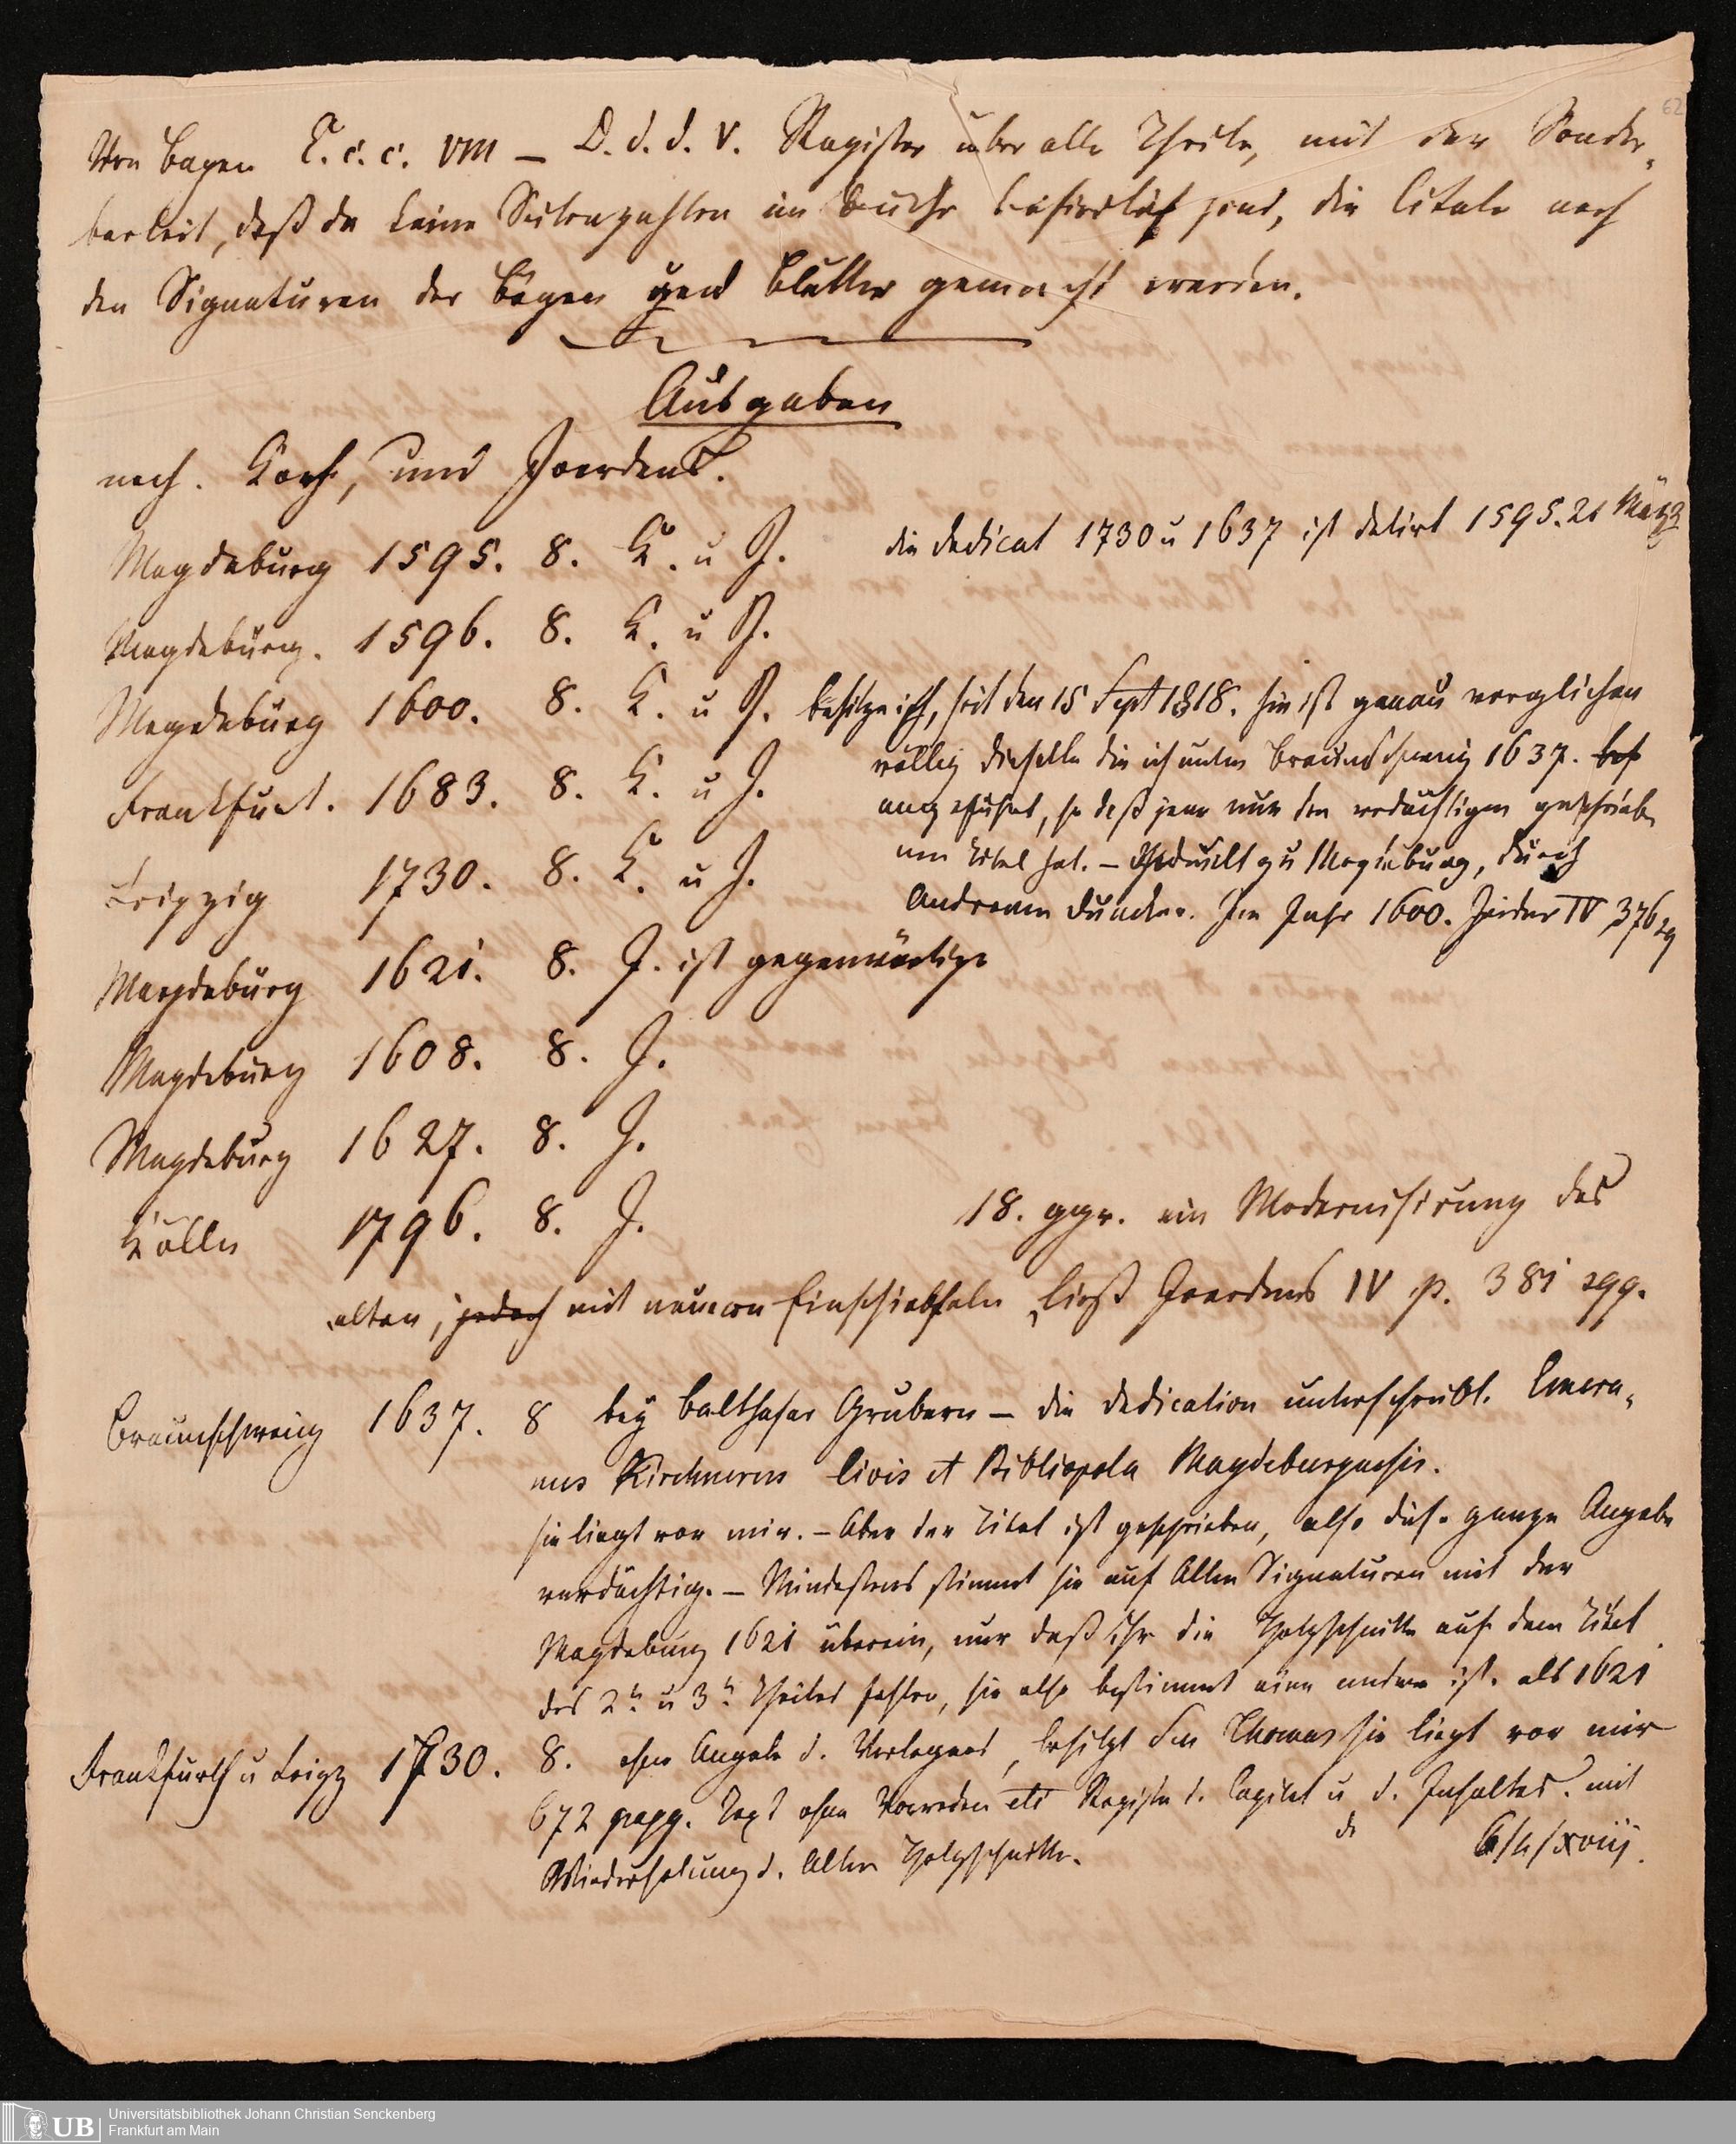 62
Von Bogen C. c. c. VIII – D. d. d. V. Register über alle Theile, mit der Sonder-
barkeit, daß da keine Seitenzahlen im Buche befindlich sind, die Citate nach
den Signaturen der Bögen und Blätter gemacht werden.
Ausgaben
nach. Koch, und Joerdens.
Magdeburg 1595. 8. K. u J. die Dedicat 1730 u 1637 ist datirt 1595. 21 März
Magdeburg. 1596. 8. K. u J.
Magdeburg 1600. 8. K. u J. besitze ich, seit den 15 Sept 1818. sie ist genau verglichen
völlig dieselbe die ich unten Braunschweig 1637.
angeführt, so daß jene nur den verdächtigen geschriebe-
nen Titel hat. – Gedruckt zu Magdeburg, durch
Andream Duncker. Im Jahr 1600. Joerdens IV 376 sq
Frankfurt. 1683. 8. K. u J.
Leipzig 1730. 8. K. u J.
Magdeburg 1621. 8. J. ist gegenwärtige
Magdeburg 1608. 8. J.
Magdeburg 1627. 8. J.
Kölln 1796. 8. J. 18. ggr. ein Modernisirung des
alten, jedoch mit neueren Einschiebseln, ließ Joerdens IV p. 381 sqq.
Braunschweig 1637. 8 bey Balthasar Grubern – die Dedication unterschreibt.
nus Kirchnerus Civis et Bibliopola Magdeburgensis.
sie liegt vor mir. – Aber der Titel ist geschrieben, also diese ganze Angabe
verdächtig. – Mindestens stimmt sie auf Allen Signaturen mit der
Magdeburg 1621 überein, nur daß ihr die Holzschnitte auf dem Titel
des 2n u 3n Theiles fehlen, sie also bestimmt eine andere ist. als 1621
Frankfurth u Leipz 1730. 8. ohne Angabe d. Verlegers, besitzt Hr Thomas sie liegt vor mir
672 pagg. Text ohne Vorreden etc Register d. Capitel u d. Inhaltes. mit
Wiederholung d. Alten Holzschnitte. 6/4/xviij.
UB Universitätsbibliothek Johann Christian Senckenberg
Frankfurt am Main